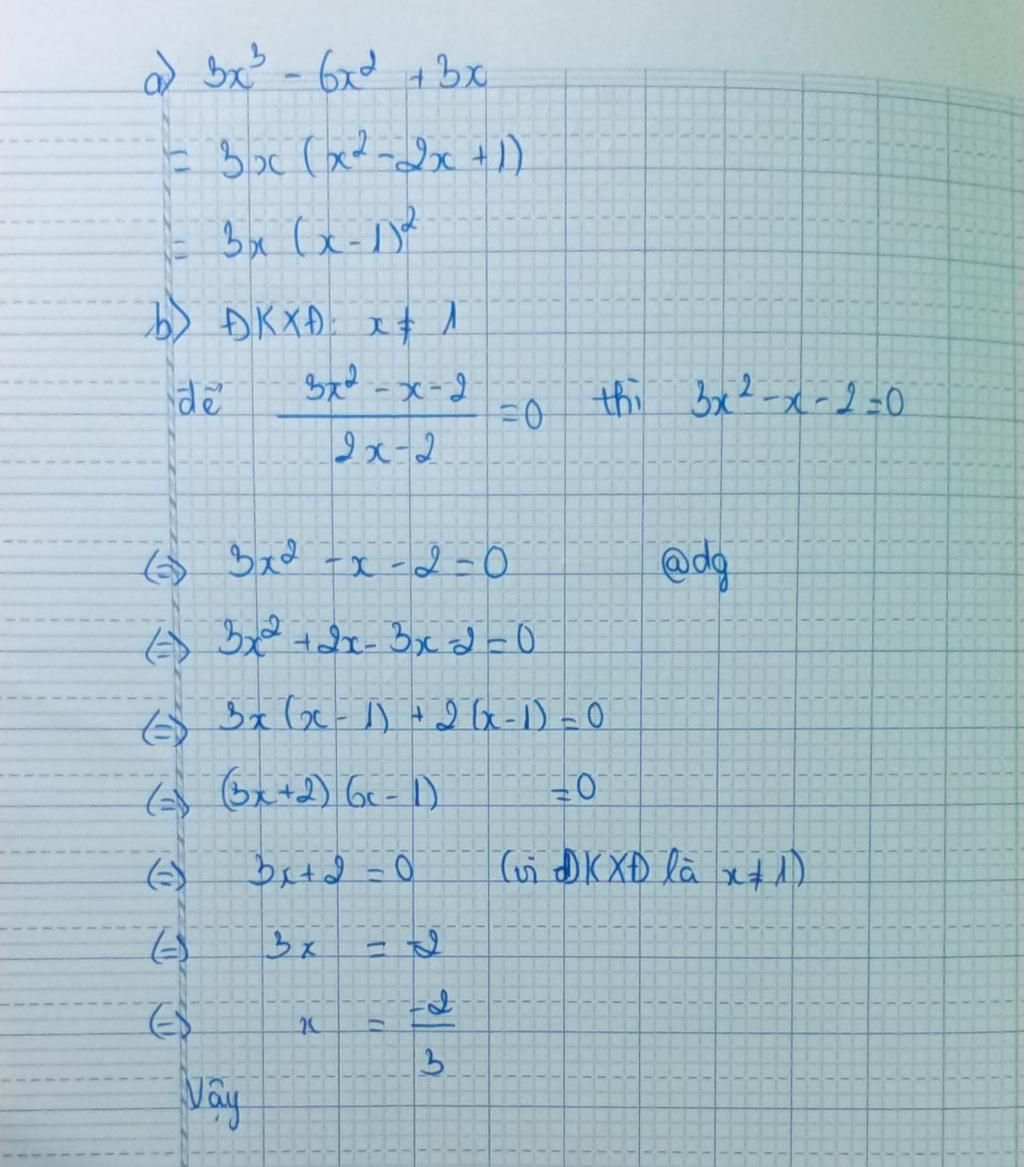 a) 3x³ - 6x² + 3x
= 3x (x² - 2x + 1)
= 3x (x - 1)²
b) ĐKXĐ: x ≠ 1
để (3x² - x - 2)/(2x - 2) = 0 thì 3x² - x - 2 = 0
(=) 3x² - x - 2 = 0 @dg
(=) 3x² + 2x - 3x - 2 = 0
(=) 3x (x - 1) + 2 (x - 1) = 0
(=) (3x + 2) (x - 1) = 0
(=) 3x + 2 = 0 (vì ĐKXĐ là x ≠ 1)
(=) 3x = -2
(=) x = -2/3
Vậy